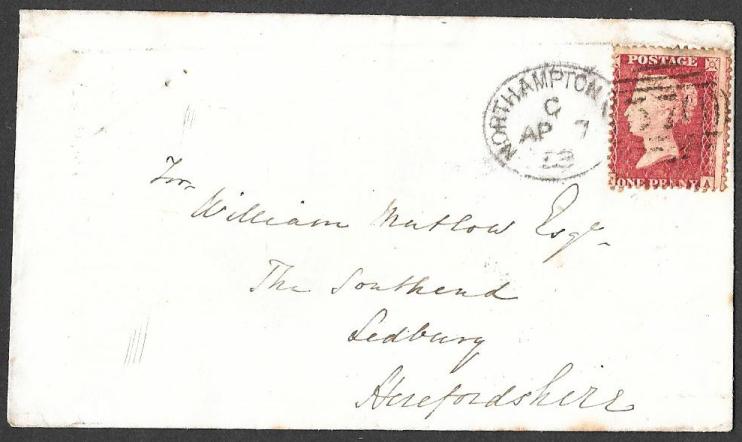 NORTHAMPTON
C
AP 7
POSTAGE
ONE PENNY
A
For
William Mutlow Esqr.
The Southend
Ledbury
Herefordshire